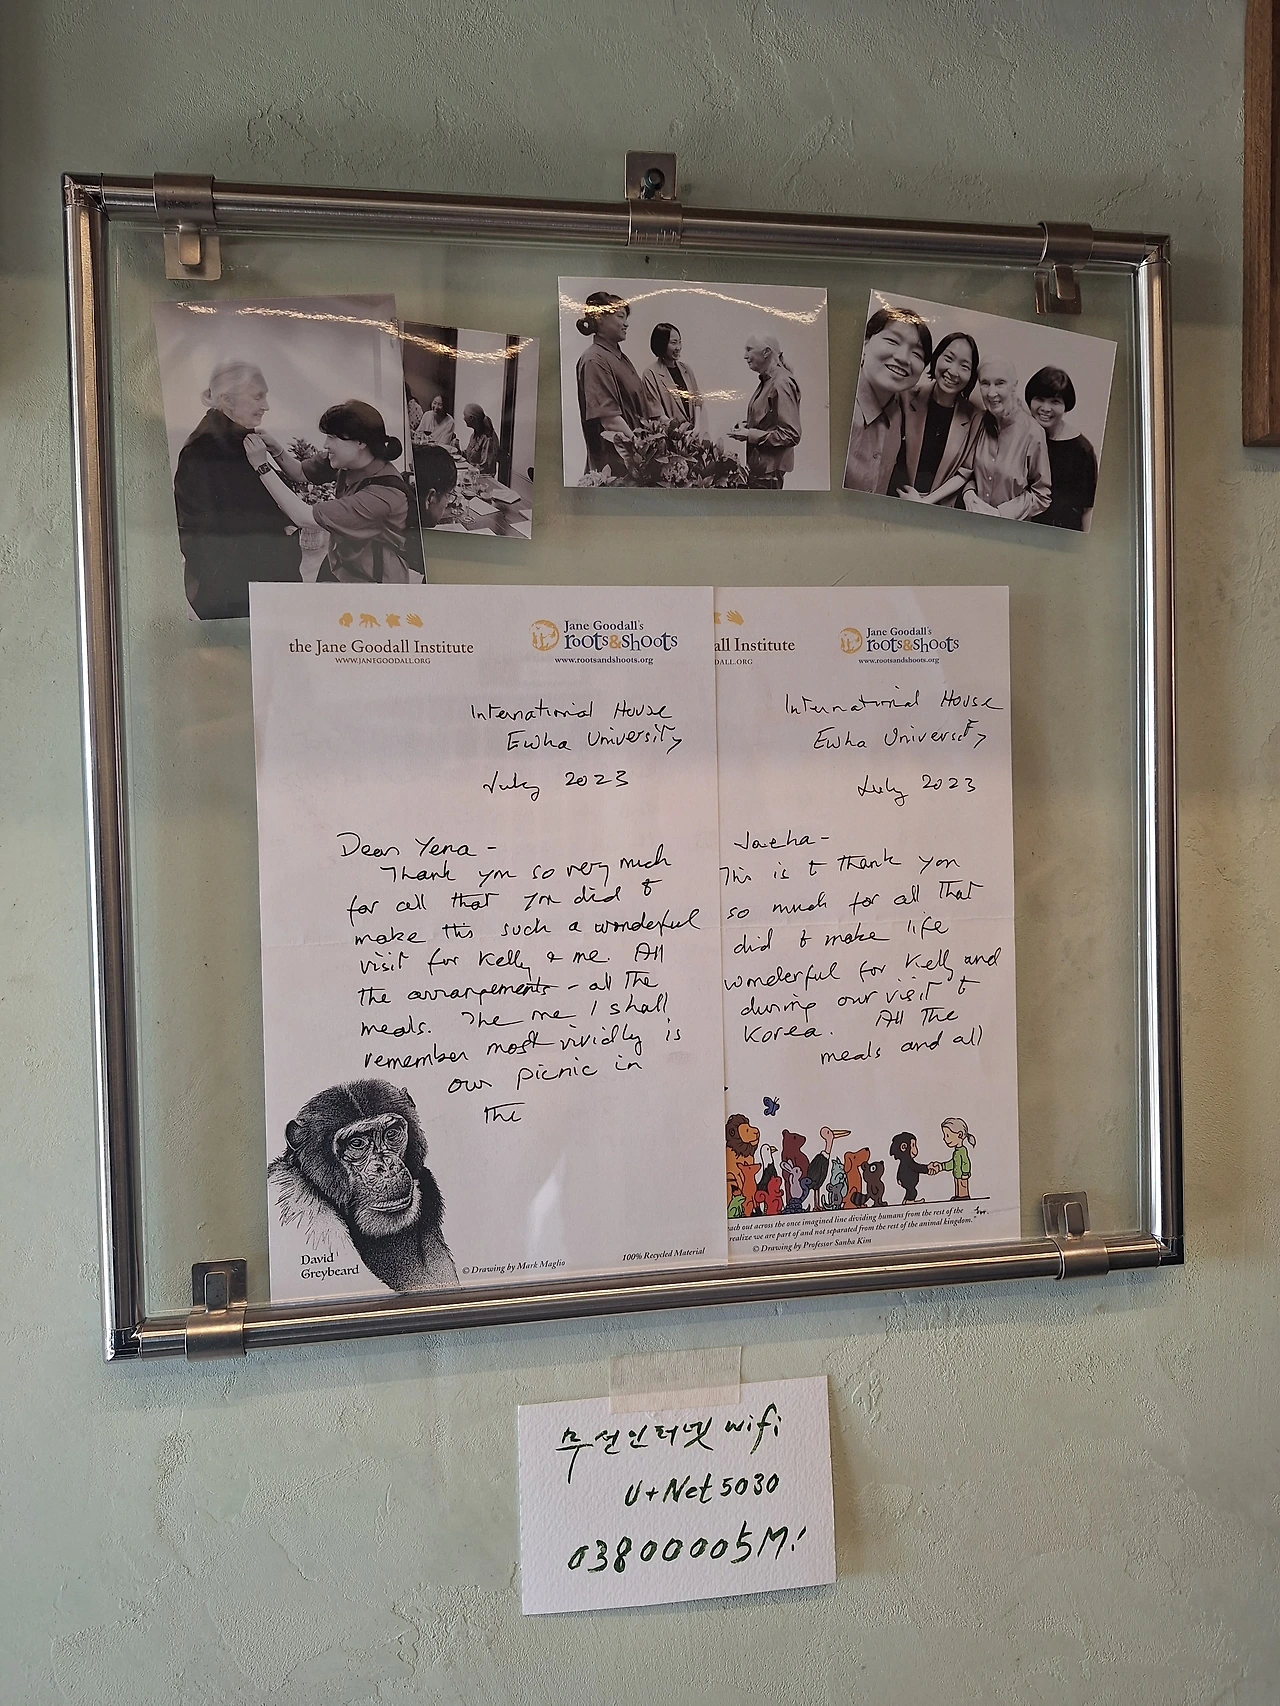 the Jane Goodall Institute
WWW.JANEGOODALL.ORG
Jane Goodall's
roots&shoots
www.rootsandshoots.org
International House
Ewha University
July 2023
Dear Yena -
Thank you so very much
for all that you did to
make this such a wonderful
visit for Kelly & me. All
the arrangements - all the
meals. The me I shall
remember most vividly is
our picnic in
the
David
Greybeard
© Drawing by Mark Maglio
100% Recycled Material
all Institute
DALL.ORG
Jane Goodall's
roots&shoots
www.rootsandshoots.org
International House
Ewha University
July 2023
Jaeha -
This is to thank you
so much for all that
did to make life
wonderful for Kelly and
during our visit to
Korea. All the
meals and all
each out across the once imagined line dividing humans from the rest of the
realize we are part of and not separated from the rest of the animal kingdom."
© Drawing by Professor Sanha Kim
무선인터넷 wifi
U+Net5030
03800005M!